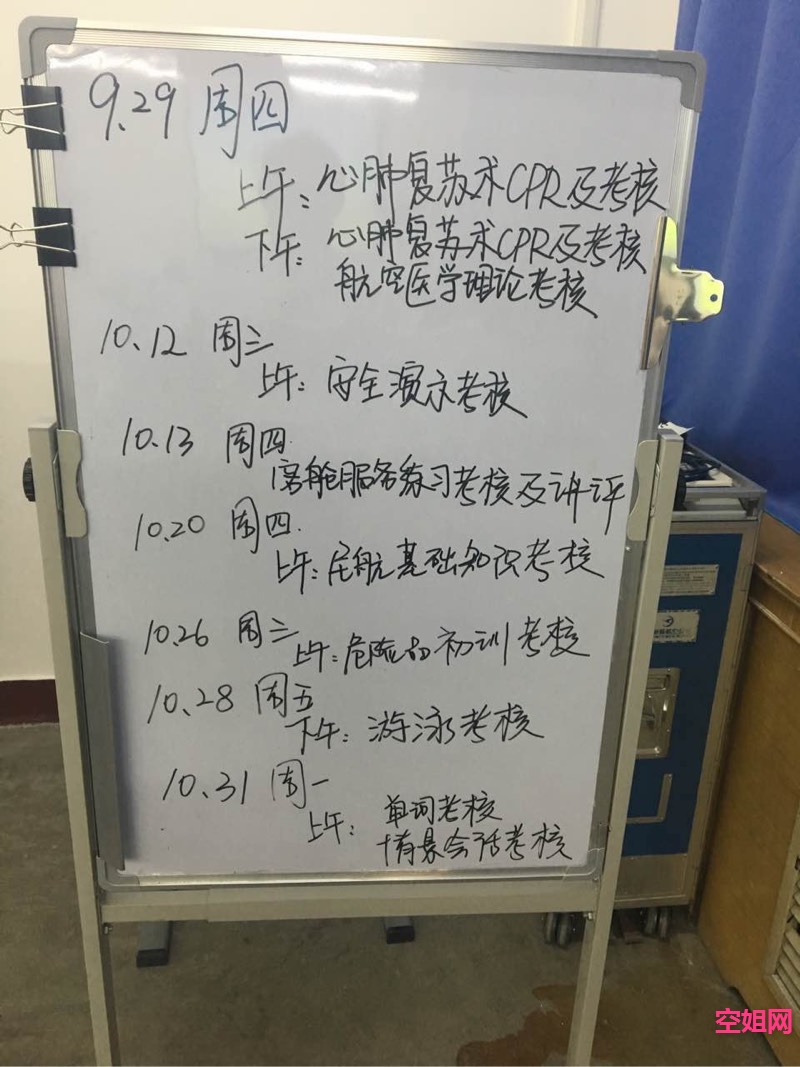 9.29 周四
上午:心肺复苏术CPR及考核
下午:心肺复苏术CPR及考核
航空医学理论考核
10.12 周三
上午:安全演示考核
10.13 周四
客舱服务练习考核及讲评
10.20 周四
上午:民航基础知识考核
10.26 周三
上午:危险品初训考核
10.28 周五
下午:游泳考核
10.31 周一
上午:单词考核
情景会话考核
空姐网